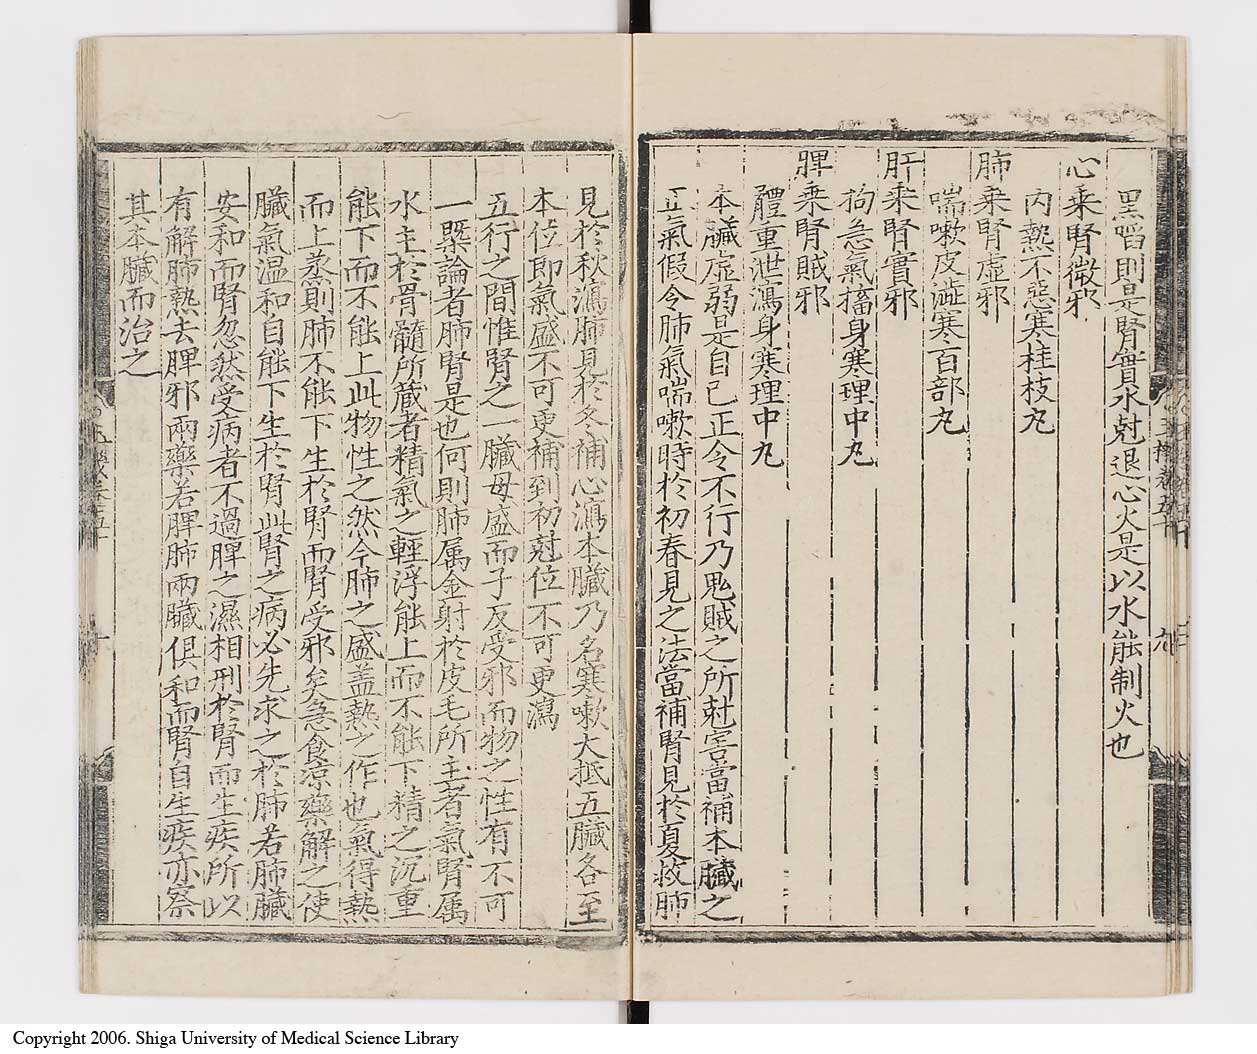 黑㗩則是腎實水尅退心火是以水能制火也
心乘腎微邪
内熱不惡寒桂枝丸
肺乘腎虛邪
喘嗽皮澁寒百部丸
肝乘腎實邪
拘急氣搐身寒理中丸
脾乘腎賊邪
體重泄瀉身寒理中丸
本臟虛弱是自己正令不行乃鬼賊之所尅害當補本臟之
正氣假令肺氣喘嗽時於初春見之法當補腎見於夏救肺
見於秋瀉肺見於冬補心瀉本臟乃名寒嗽大抵五臟各至
本位即氣盛不可更補到初尅位不可更瀉
五行之間惟腎之一臟母盛而子反受邪而物之性有不可
一槩論者肺腎是也何則肺属金射於皮毛所主者氣腎属
水主於骨髓所蔵者精氣之輕浮能上而不能下精之沉重
能下而不能上此物性之然今肺之盛盖熱之作也氣得熱
而上蒸則肺不能下生於腎而腎受邪矣急食凉藥解之使
臟氣温和自能下生於腎此腎之病必先求之於肺若肺臟
安和而腎忽然受病者不過脾之濕相刑於腎而生疾所以
有解肺熱去脾邪兩藥若脾肺兩臟俱和而腎自生疾亦察
其本臟而治之
Copyright 2006. Shiga University of Medical Science Library